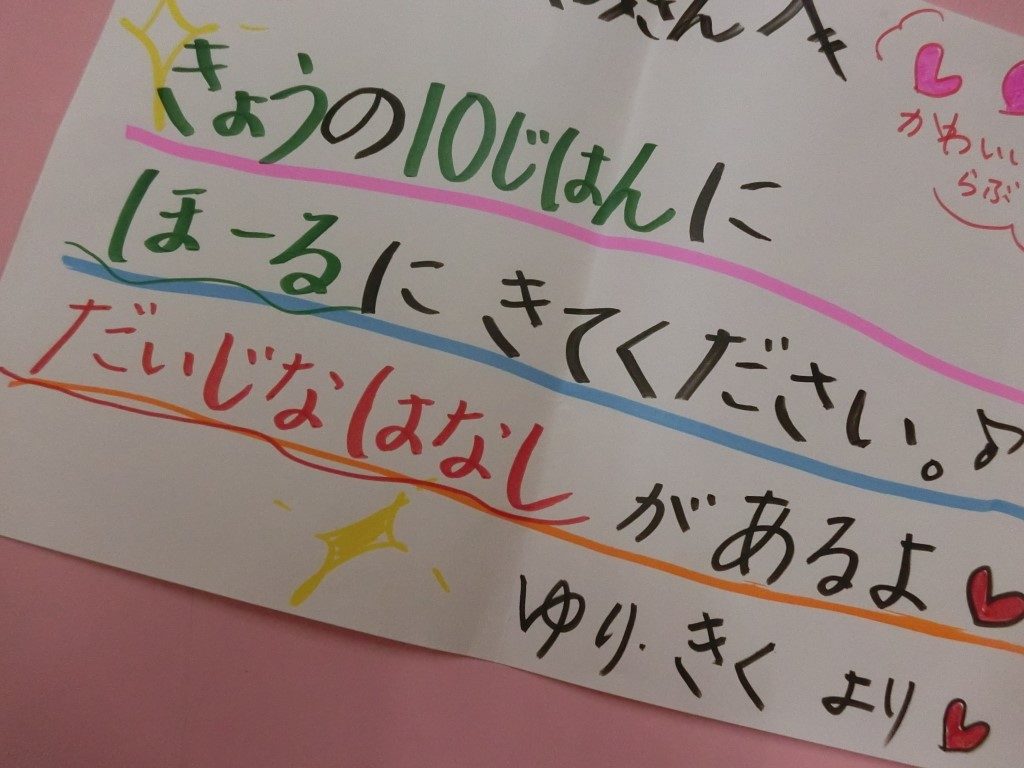 さんへ
きょうの10じはんに
ほーるに きてください。♪
だいじなはなし があるよ
ゆり・きく より
かわいい
らぶ